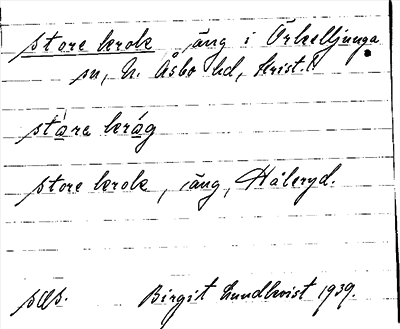 store krok, äng i Örkelljunga
sn, N. Åsbo hd, Krist. l.
stɑre krɑg
store krok, äng, Håleryd.
sɑs. Birgit Lundkvist 1939.